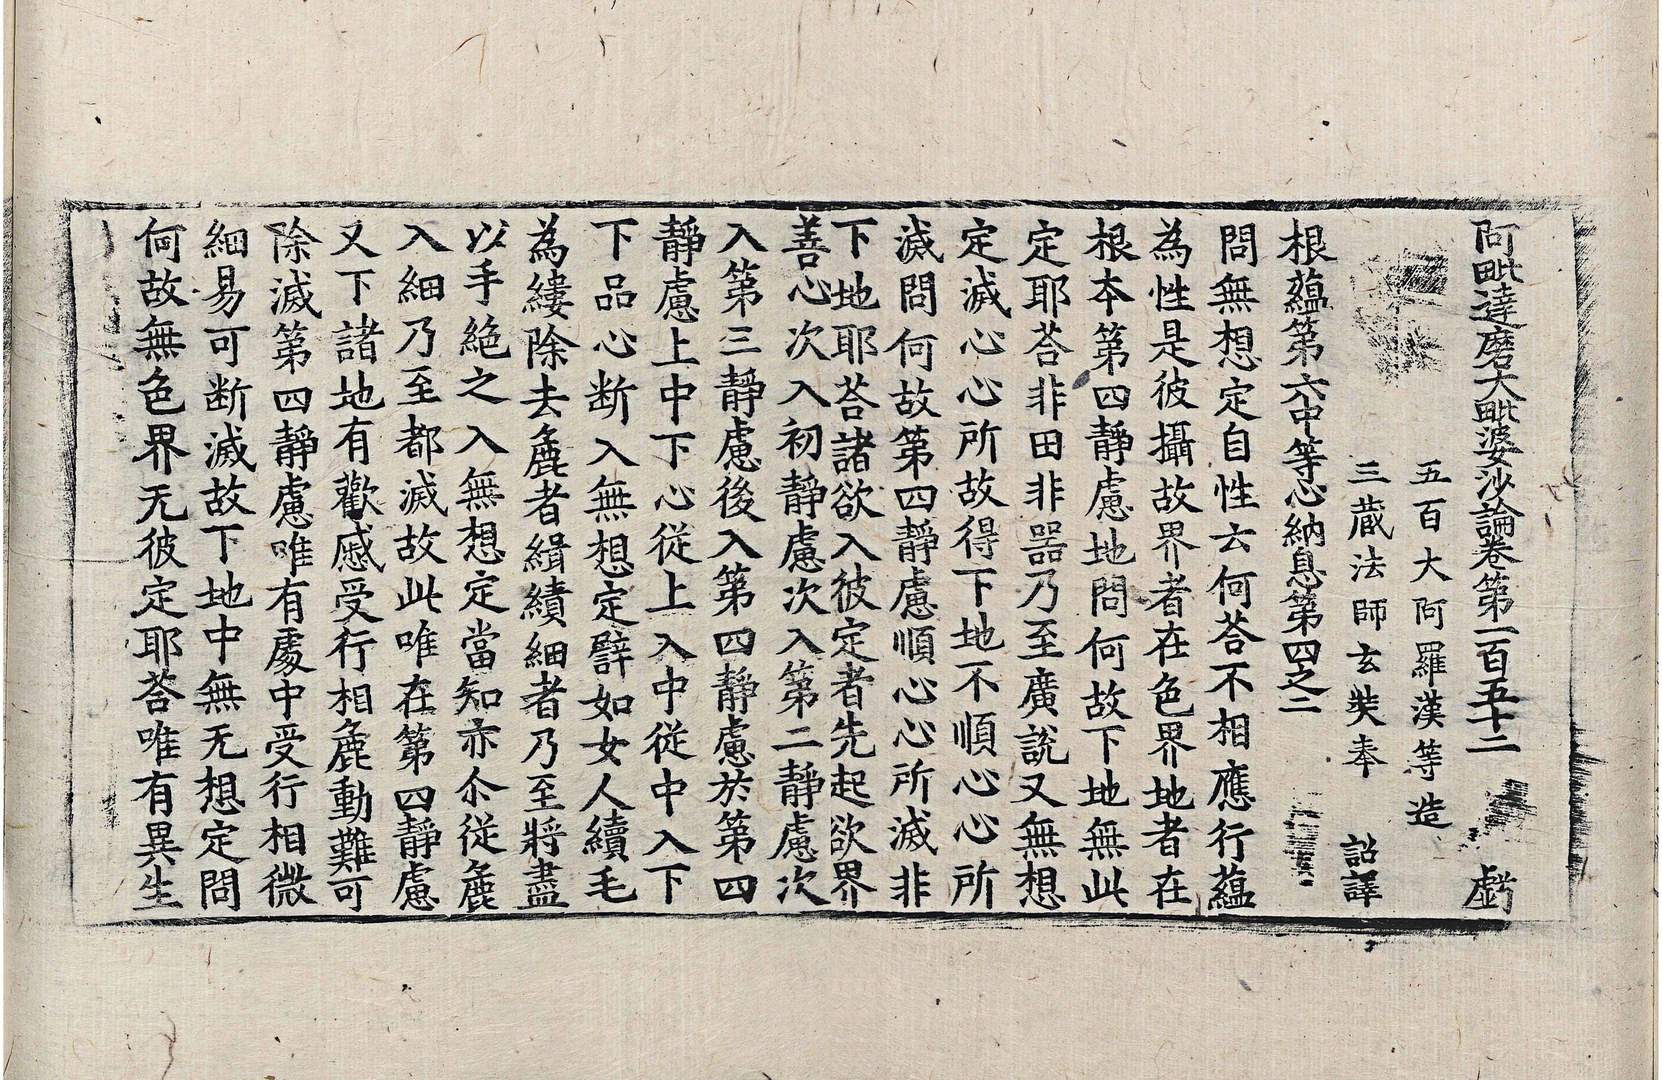 阿毗達磨大毗婆沙論卷第一百五十二 虧
五百大阿羅漢等造
三藏法師玄奘奉 詔譯
根蘊第六中等心納息第四之二
問無想定自性云何荅不相應行蘊
為性是彼攝故界者在色界地者在
根本第四靜慮地問何故下地無此
定耶荅非田非器乃至廣說又無想
定滅心心所故得下地不順心心所
滅問何故第四靜慮順心心所滅非
下地耶荅諸欲入彼定者先起欲界
善心次入初靜慮次入第二靜慮次
入第三靜慮後入第四靜慮於第四
靜慮上中下心從上入中從中入下
下品心断入無想定譬如女人續毛
為縷除去麁者緝績細者乃至將盡
以手絶之入無想定當知亦尒從麁
入細乃至都滅故此唯在第四靜慮
又下諸地有歡慼受行相麁動難可
除滅第四靜慮唯有處中受行相微
細易可断滅故下地中無无想定問
何故無色界无彼定耶荅唯有異生